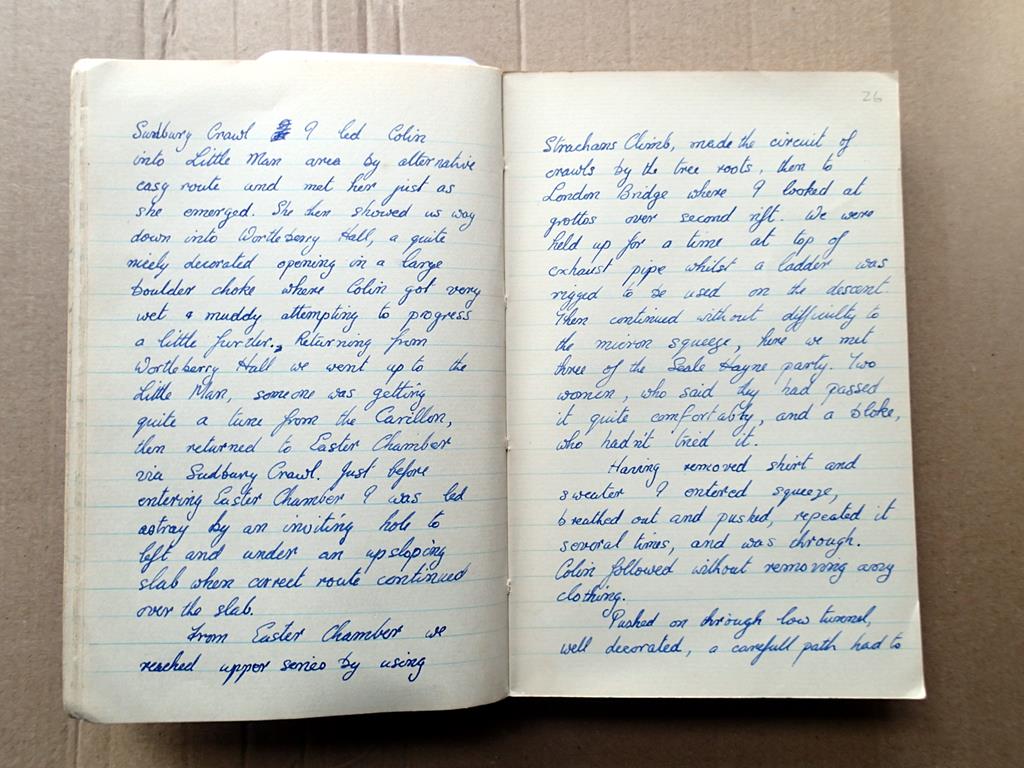 Sudbury Crawl I led Colin
into Little Man area by alternative
easy route and met her just as
she emerged. She then showed us way
down into Wortleberry Hall, a quite
nicely decorated opening in a large
boulder choke where Colin got very
wet & muddy attempting to progress
a little further. Returning from
Wortleberry Hall we went up to the
Little Man, someone was getting
quite a tune from the Carillon,
then returned to Easter Chamber
via Sudbury Crawl. Just before
entering Easter Chamber I was led
astray by an inviting hole to
left and under an upsloping
slab when correct route continued
over the slab.
From Easter Chamber we
reached upper series by using
26
Strachans Climb, made the circuit of
crawls by the tree roots, then to
London Bridge where I looked at
grottos over second rift. We were
held up for a time at top of
exhaust pipe whilst a ladder was
rigged to be used on the descent.
Then continued without difficulty to
the micron squeeze, here we met
three of the Seale Hayne party. Two
women, who said they had passed
it quite comfortably, and a bloke,
who hadn't tried it.
Having removed shirt and
sweater I entered squeeze,
breathed out and pushed, repeated it
several times, and was through.
Colin followed without removing any
clothing.
Pushed on through low tunnel,
well decorated, a carefull path had to